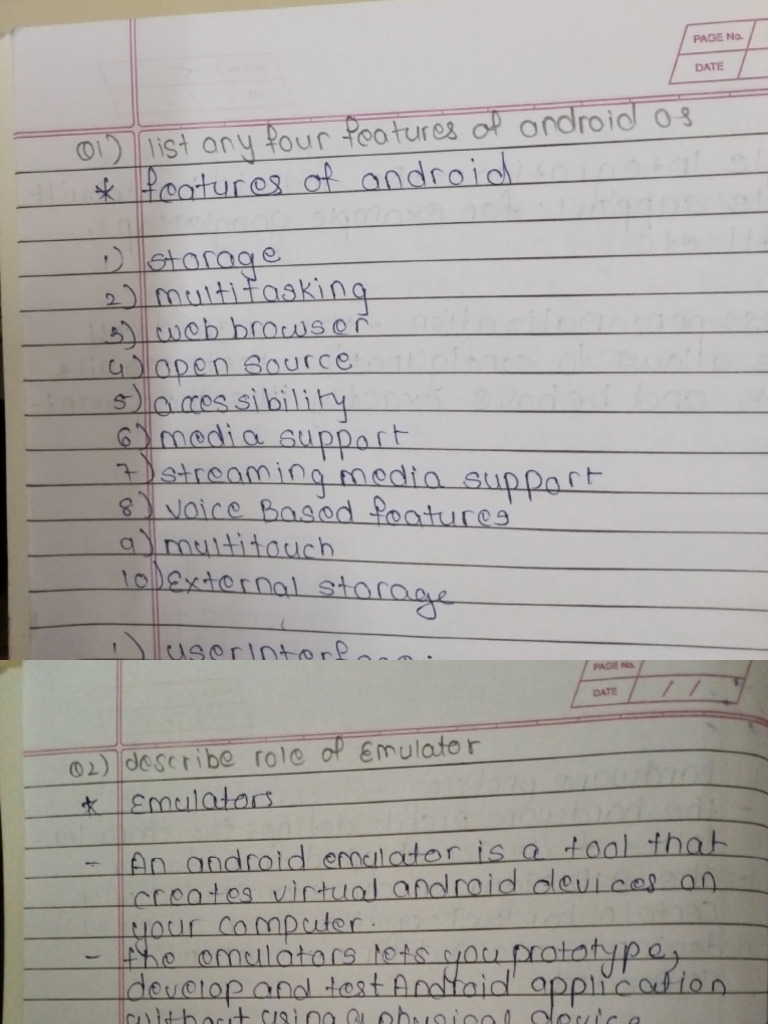 PAGE No.
DATE
Q1) list any four features of android os
* features of android
1) storage
2) multitasking
3) web browser
4) open source
5) accessibility
6) media support
7) streaming media support
8) voice Based features
9) multitouch
10) External storage
1) userInterface:
PAGE No.
DATE / /
Q2) describe role of Emulator
* Emulators
- An android emulator is a tool that
creates virtual android devices on
your computer.
- the emulators lets you prototype,
develop and test Android application
without using a physical device